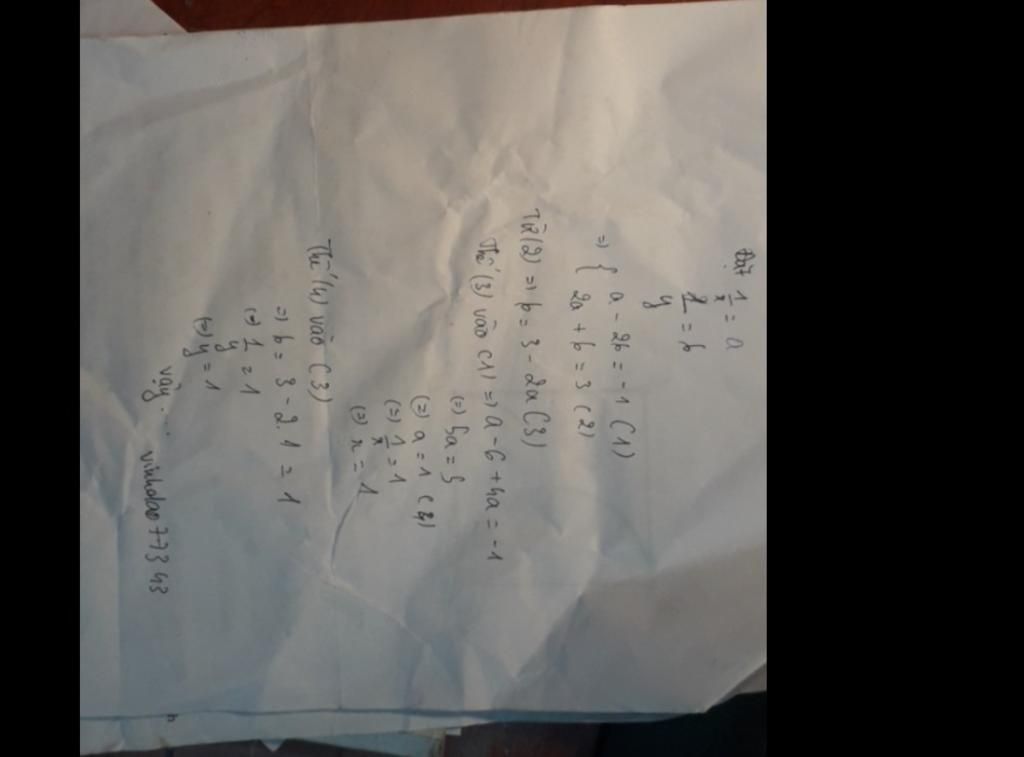 Đặt 1/x = a
1/y = b
=) { a - 2b = -1 (1)
2a + b = 3 (2)
Từ (2) =) b = 3 - 2a (3)
Thế (3) vào (1) =) a - 6 + 4a = -1
(=) 5a = 5
(=) a = 1 (4)
(=) 1/x = 1
(=) x = 1
Thế (4) vào (3)
=) b = 3 - 2.1 = 1
(=) 1/y = 1
(=) y = 1
vậy....
vinhdao77343